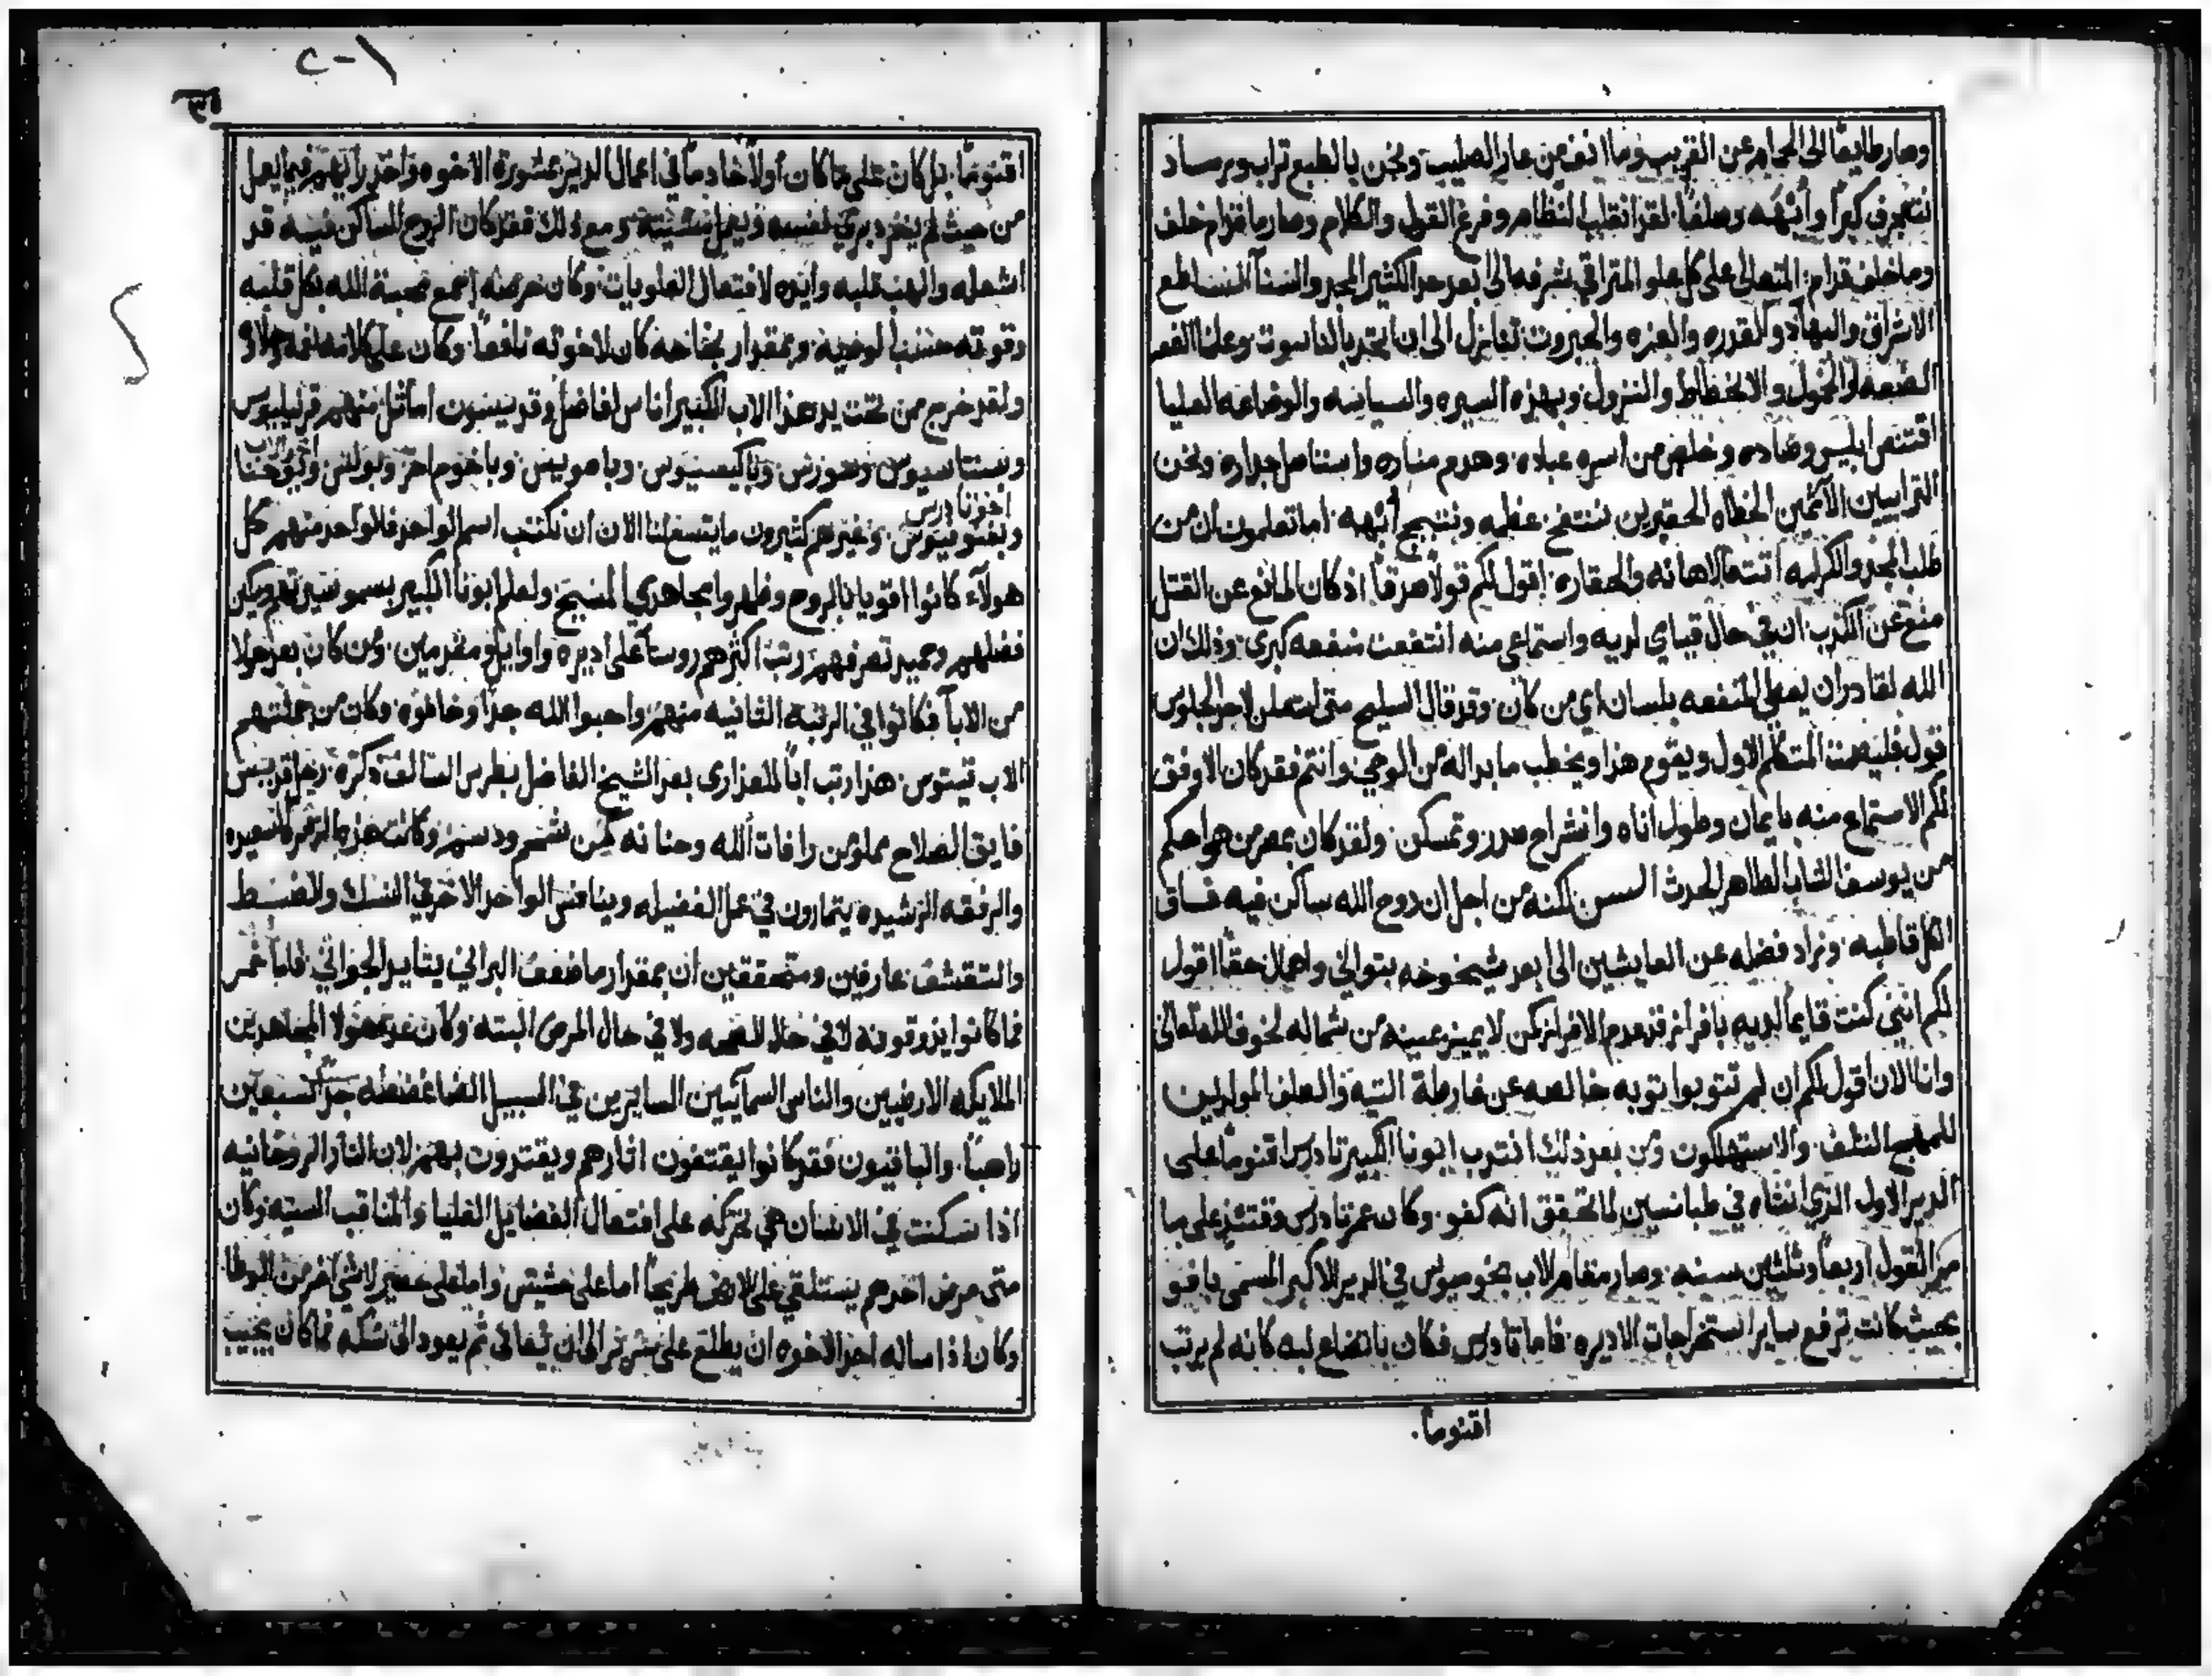 وصار طايعًا الى الحمام عن القريب وما انف من عار الصليب ونحن بالطبع تراب ورماد
نتعجرف كبرًا وأبّهه وصلفًا. لقد انقلب النظام وفرغ القول والكلام وصار ما قدام خلف
وما خلف قدام. المتعالى على كل علو المتراقي بشرفه الى ابعد حد الكثير المجد والسنآ الساطع
الاشراق والبهآء والقدره والعزه والجبروت تنازل الى ان اتحد بالناسوت وعلنا
الضعه والخمول والانحطاط والنزول وبهذه السيره والسياسه والوضاعه العليا
اقتنص ابليس وصاده وخلص من اسره عباده وهدم مناره واستاصل جداره ونحن
الترابيين الآثمين الخطاه الحقيرين ننتفخ عظمه ونتبجح أبّهه اما تعلمون ان من
طلب المجد والكرامه أتته الاهانه والحقاره. اقول لكم قولًا صدقًا اذ كان المانع عن القتل
منع عن الكذب ان في حال قيامي لديه واستماعي منه انتفعت منفعه كبرى. وذلك ان
الله لقادر ان يعطي المنفعه بلسان اي من كان. وقد قال السليح متى استعلن لاحد الجلوس
قول فليصمت المتكلم الاول ويقوم هذا ويخطب ما بدا له من الوحي وانتم فقد كان الاوفق
لكم الاستماع منه بايمان وطول اناه وانشراح صدر وتمسكن. ولقد كان بمصر من هو احكم
من يوسف الشاب الطاهر الحدث السن لكنه من اجل ان روح الله ساكن فيه فساق
الكل قاطبه. وزاد فضله عن العايشين الى ابعد شيخوخه بتواني واهمال حقًا اقول
لكم انني كنت قايمًا لديه بافراز قد عدم الافراز كمن لا يميز يمينه من شماله لخوف الله تعالى
وانا الان اقول لكم ان لم تتوبوا توبه خالصه عن فارطة التيه والصلف المولدين
للمهيع التلف والا ستهلكون ومن بعد ذلك انتدب ابونا الكبير تادرس اقنومًا على
الدير الاول الذي انشاه في طبانسين لما تحقق انه كفو. وكان عمر تادرس وقتئذ على ما
ميز القول اربعًا وثلثين سنه. وصار مقام الاب بخوميوس في الدير الاكبر المسمى بافنو
بحيث كانت ترفع ساير استخراجات الاديره. فاما تادرس فكان باتضاع لبه كانه لم يرتب
اقنومًا.
اقنومًا. بل كان على ما كان أولًا خادمًا في اعمال الدير بمشورة الاخوه واخذ رأيهم فيما يعمل
من حيث لم ينفرد برئ نفسه ويعمل بمشيته ومع ذلك فقد كان الروح الساكن فيه قد
اشعله والهب قلبه وأيده لافتعال العلويات. وكان حرصه اجمع محبة الله بكل قلبه
وقوته حسب الوصيه. وبمقدار نجاحه كان لاخوته نافعًا. وكان على كلامه نعمه وحلاوه
ولقد خرج من تحت يد هذا الاب الكبير اناس افاضل وقديسون اماثل منهم قرنيليوس
وبستاسيوس وسوزس وباكيسيوس. وباموييس. وباخوم اخر وبولس ويوحنا
اخو تادرس
وغيرهم كثيرون ما يتسع لنا الان ان نكتب اسم الواحد فالواحد منهم كل
هولآء كانوا اقويا بالروح وظهروا مجاهدي المسيح ولعلم ابونا الكبير بسمو سيرتهم وتمكين
فضلهم وحميد تصرفهم رتب اكثرهم روسآ على اديره واوايل ومقدمين. ومن كان بعد هولا
من الابآ فكانوا في الرتبه الثانيه منهم واحبوا الله جدًا وخافوه. وكان من جملتهم
الاب تيتوس. هذا رتب ابًا للعذارى بعد الشيخ الفاضل بطرس السالف ذكره. رجل قديس
فايق الصلاح مملو من رافات الله وحنانه وكانت هذه الزمر السعيده
والرفقه الرشيده يتمارون في عمل الفضيله وينافس الواحد الاخر في النسك والضبط
والتقشف عارفين ومتحققين ان بمقدار ما ضعف البراني يتايد الجواني. فاما خمر
فما كانوا يذوقونه لا في خلال الصحه ولا في حال المرض البته. وكان عدد هولا المجاهدين
الملايكه الارضيين والناس السمآئيين السايرين في السبيل الضاغطه جدًا سبعين
راهبًا. والباقيون فقد كانوا يقتفون اثارهم ويقتدون بهم لان النار الروحانيه
اذا سكنت في الانسان هي تحركه على افتعال الفضايل العليا والمناقب السنيه وكان
متى مرض احدهم يستلقي على الارض طريحًا اما على حشيش واما على حصير لا شي اخر من الوطا.
وكان اذا ساله احد الاخوه ان يطلع على سرير الى ان يتعافى ثم يعود الى نسكه فما كان يجيب